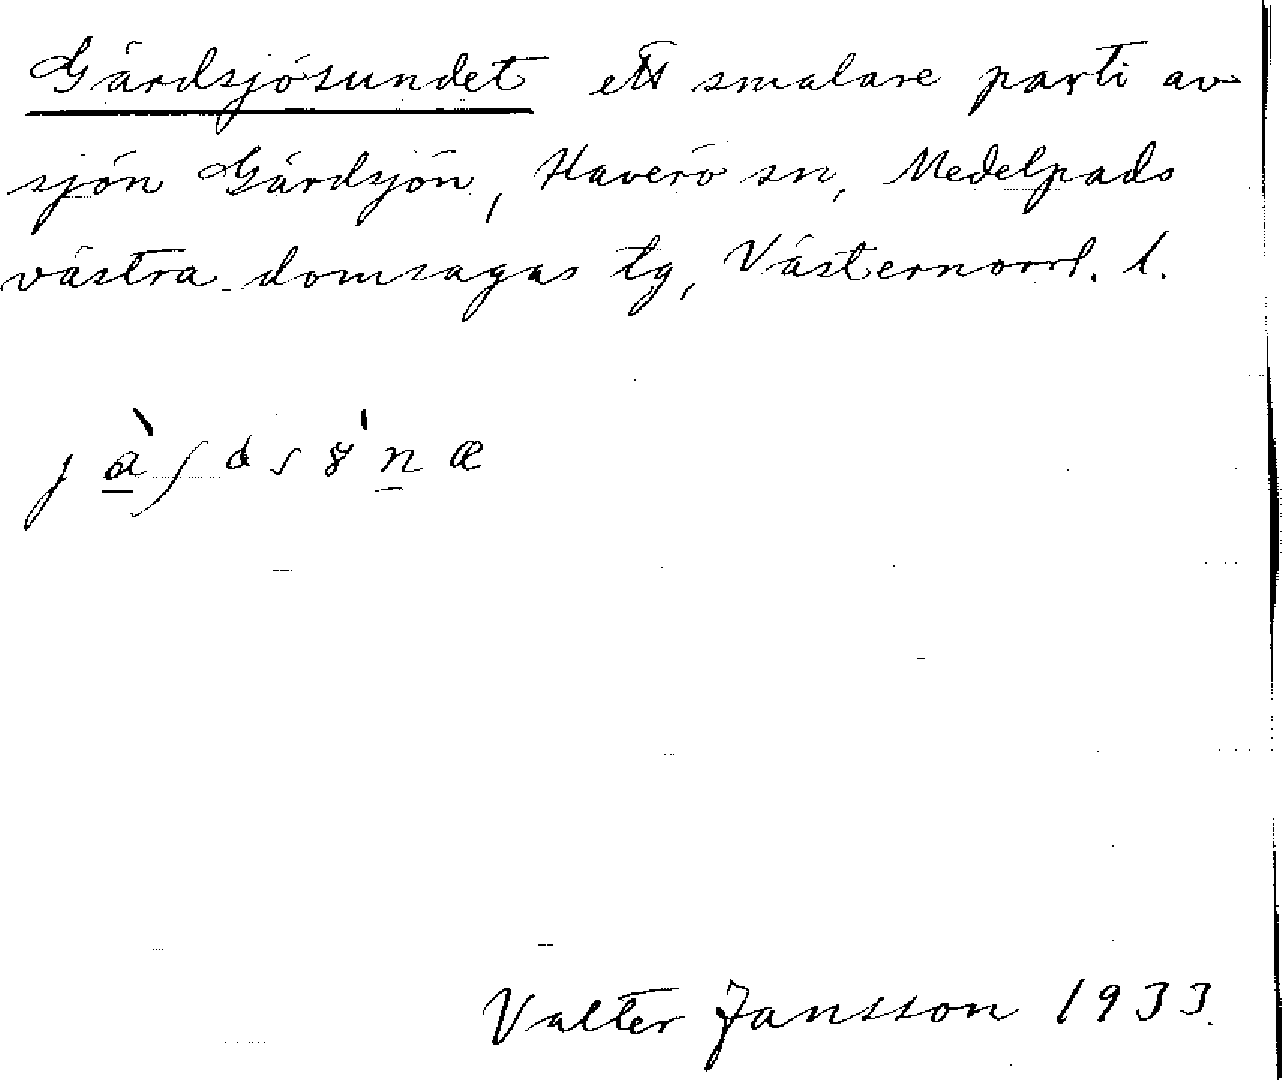 Gärdsjösundet ett smalare parti av
sjön Gärdsjön, Haverö sn, Medelpads
västra domsagas tg, Västernorrl. l.
Valter Jansson 1933.